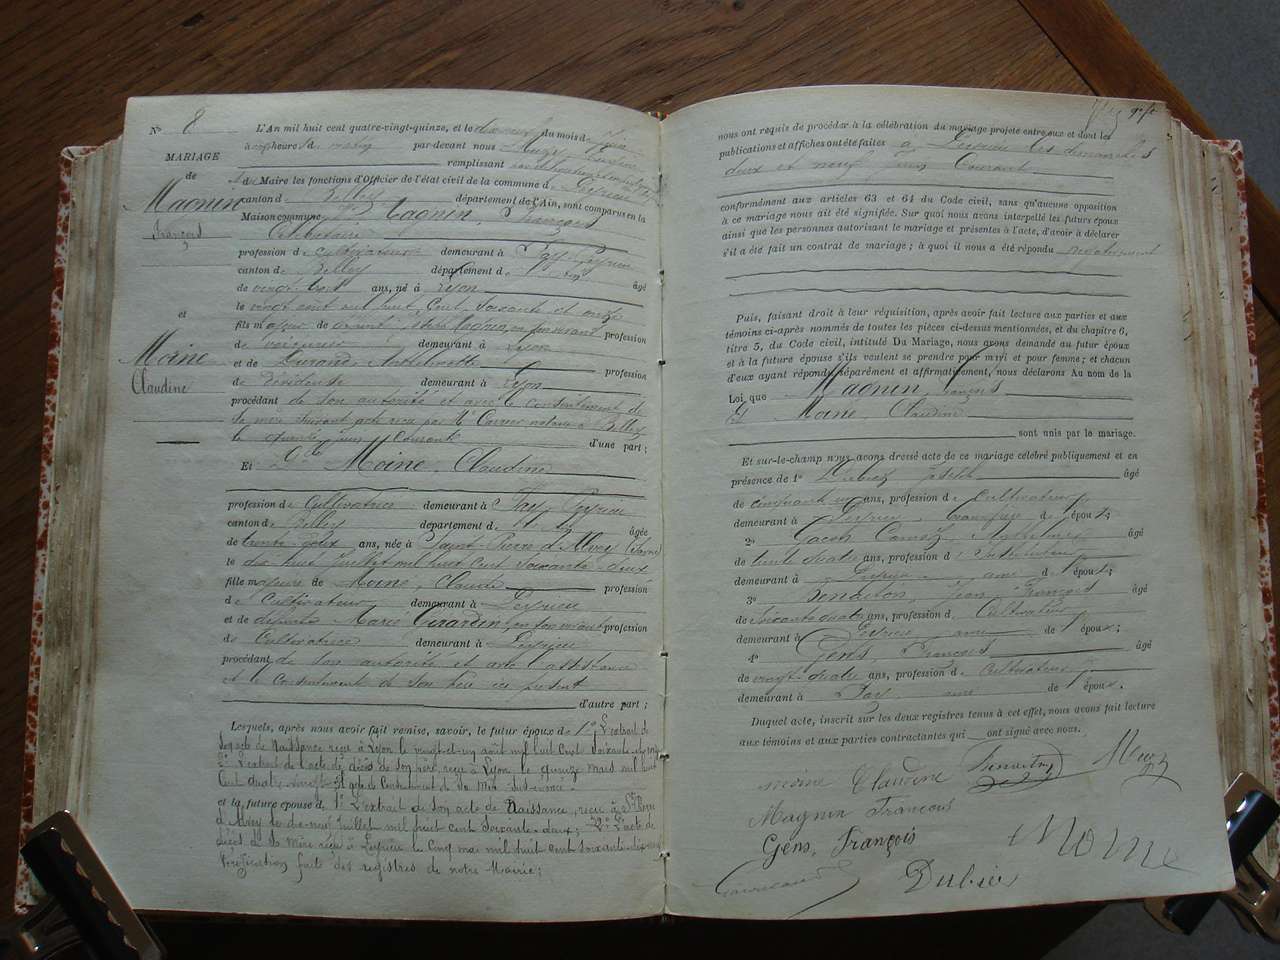 N° 8
MARIAGE
de
Magnin
François
et
Moine
Claudine
L'An mil huit cent quatre-vingt-quinze, et le du mois de Juin
à heures du matin par-devant nous
remplissant
de Maire les fonctions d'Officier de l'état civil de la commune de Peyrieu
canton de Belley département de l'Ain, sont comparus en la
Maison commune Magnin, François
Célibataire
profession de cultivateur demeurant à Fay, Peyrieu
canton de Belley département de l'Ain âgé
de vingt trois ans, né à Lyon
le vingt août mil huit Cent Soixante et onze
fils majeur de Magnin, en son vivant profession
de voiturier demeurant à Lyon
et de Durand, profession
de demeurant à Lyon
procédant de son autorité et avec le consentement de
sa mère suivant acte reçu par Me notaire à Belley
le quinze juin Courant d'une part ;
Et Dlle Moine, Claudine
profession de Cultivatrice demeurant à Fay, Peyrieu
canton de Belley département de l'Ain âgée
de trente deux ans, née à Saint Pierre d'Alvey (Savoie)
le dix neuf Juillet mil huit Cent Soixante deux
fille majeure de Moine, Claude profession
de Cultivateur demeurant à Peyrieu
et de défunte Marie Girardin, en son vivant profession
de Cultivatrice demeurant à Peyrieu
procédant de son autorité et avec l'assistance
et le Consentement de son père ici présent
d'autre part ;
Lesquels, après nous avoir fait remise, savoir, le futur époux de 1° L'extrait de
Son acte de Naissance reçu à Lyon le vingt-et-un août mil huit Cent Soixante-et-onze
2° L'extrait de l'acte de décès de Son père, reçu à Lyon, le quinze Mars mil huit
Cent quatre-vingt l'acte de Consentement de Sa Mère
et la future épouse de 1° L'extrait de Son acte de Naissance, reçu à St Pierre
d'Alvey le dix-neuf Juillet mil huit cent Soixante-deux ; 2° L'acte de
décès de Sa Mère reçu à Peyrieu le Cinq mai mil huit cent soixante-dix
Vérification faite des registres de notre Mairie ;
nous ont requis de procéder à la célébration du mariage projeté entre eux et dont les
publications et affiches ont été faites à Peyrieu les dimanches
deux et neuf juin Courant
conformément aux articles 63 et 64 du Code civil, sans qu'aucune opposition
à ce mariage nous ait été signifiée. Sur quoi nous avons interpellé les futurs époux
ainsi que les personnes autorisant le mariage et présentes à l'acte, d'avoir à déclarer
s'il a été fait un contrat de mariage ; à quoi il nous a été répondu négativement
Puis, faisant droit à leur réquisition, après avoir fait lecture aux parties et aux
témoins ci-après nommés de toutes les pièces ci-dessus mentionnées, et du chapitre 6,
titre 5, du Code civil, intitulé Du Mariage, nous avons demandé au futur époux
et à la future épouse s'ils veulent se prendre pour mari et pour femme ; et chacun
d'eux ayant répondu séparément et affirmativement, nous déclarons Au nom de la
Loi que Magnin François
Et Moine Claudine
sont unis par le mariage.
Et sur-le-champ nous avons dressé acte de ce mariage célébré publiquement et en
présence de 1° Dubiez Joseph âgé
de cinquante un ans, profession de Cultivateur
demeurant à Peyrieu, beau frère de l'époux ;
2° âgé
de trente quatre ans, profession d' Instituteur
demeurant à Peyrieu ami de l'époux ;
3° Jean François âgé
de soixante quatre ans, profession de Cultivateur
demeurant à Peyrieu, ami de l'époux ;
4° Gens, François âgé
de vingt-quatre ans, profession de Cultivateur
demeurant à Fay ami de l'époux.
Duquel acte, inscrit sur les deux registres tenus à cet effet, nous avons fait lecture
aux témoins et aux parties contractantes qui ont signé avec nous.
moine Claudine
Magnin François
Gens, François Moine